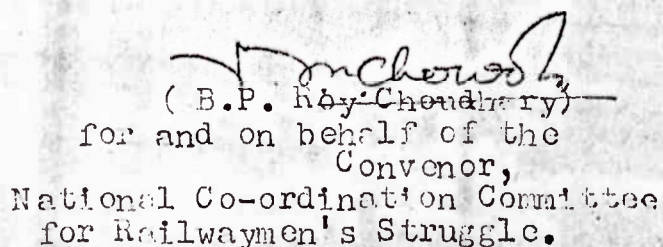 ( B.P. Roy Choudhary)
for and on behalf of the
Convenor,
National Co-ordination Committee
for Railwaymen's Struggle.